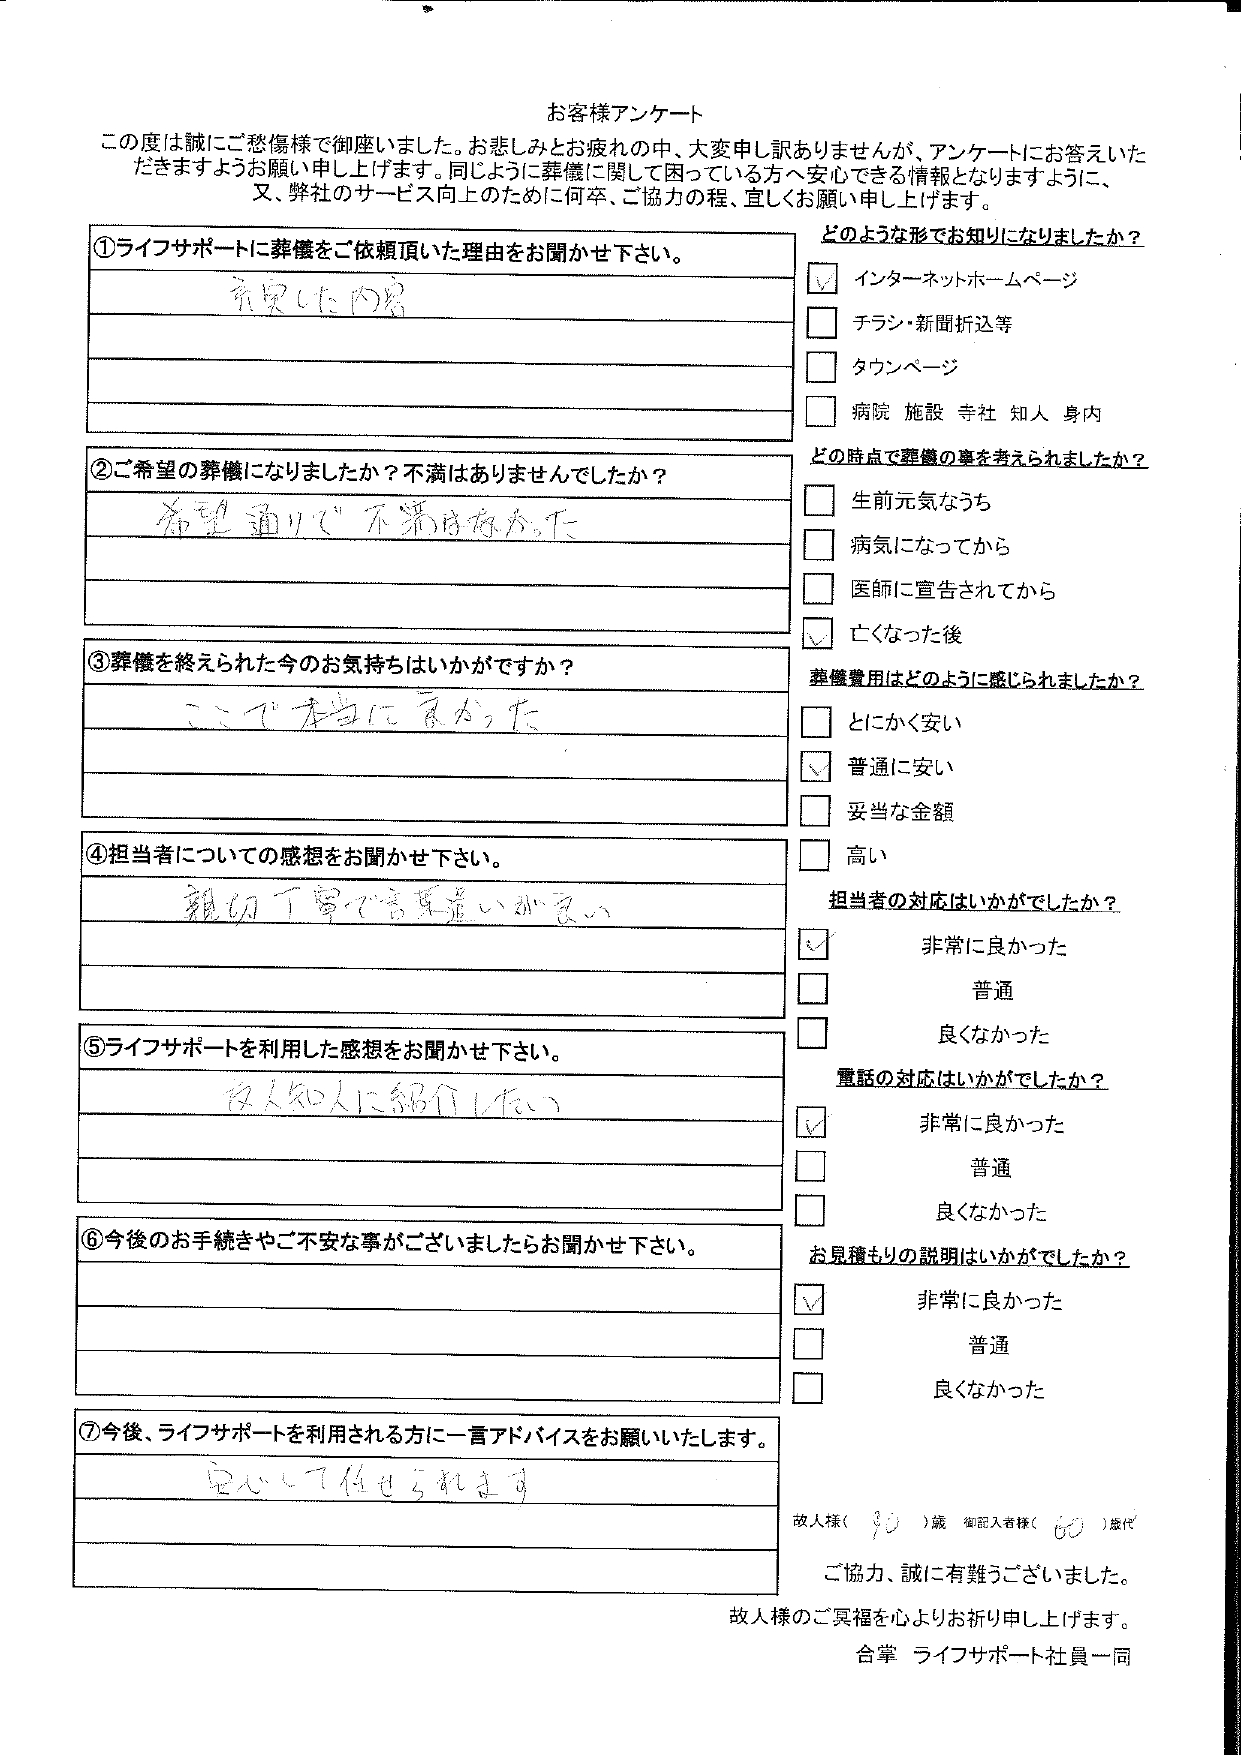 お客様アンケート
この度は誠にご愁傷様で御座いました。お悲しみとお疲れの中、大変申し訳ありませんが、アンケートにお答えいた
だきますようお願い申し上げます。同じように葬儀に関して困っている方へ安心できる情報となりますように、
又、弊社のサービス向上のために何卒、ご協力の程、宜しくお願い申し上げます。
①ライフサポートに葬儀をご依頼頂いた理由をお聞かせ下さい。
充実した内容
②ご希望の葬儀になりましたか？不満はありませんでしたか？
希望通りで不満はなかった
③葬儀を終えられた今のお気持ちはいかがですか？
ここで本当に良かった
④担当者についての感想をお聞かせ下さい。
親切丁寧で言葉遣いが良い
⑤ライフサポートを利用した感想をお聞かせ下さい。
友人知人に紹介したい
⑥今後のお手続きやご不安な事がございましたらお聞かせ下さい。
⑦今後、ライフサポートを利用される方に一言アドバイスをお願いいたします。
安心して任せられます
どのような形でお知りになりましたか？
インターネットホームページ
チラシ・新聞折込等
タウンページ
病院 施設 寺社 知人 身内
どの時点で葬儀の事を考えられましたか？
生前元気なうち
病気になってから
医師に宣告されてから
亡くなった後
葬儀費用はどのように感じられましたか？
とにかく安い
普通に安い
妥当な金額
高い
担当者の対応はいかがでしたか？
非常に良かった
普通
良くなかった
電話の対応はいかがでしたか？
非常に良かった
普通
良くなかった
お見積もりの説明はいかがでしたか？
非常に良かった
普通
良くなかった
故人様( 90 )歳 御記入者様( 60 )歳代
ご協力、誠に有難うございました。
故人様のご冥福を心よりお祈り申し上げます。
合掌 ライフサポート社員一同